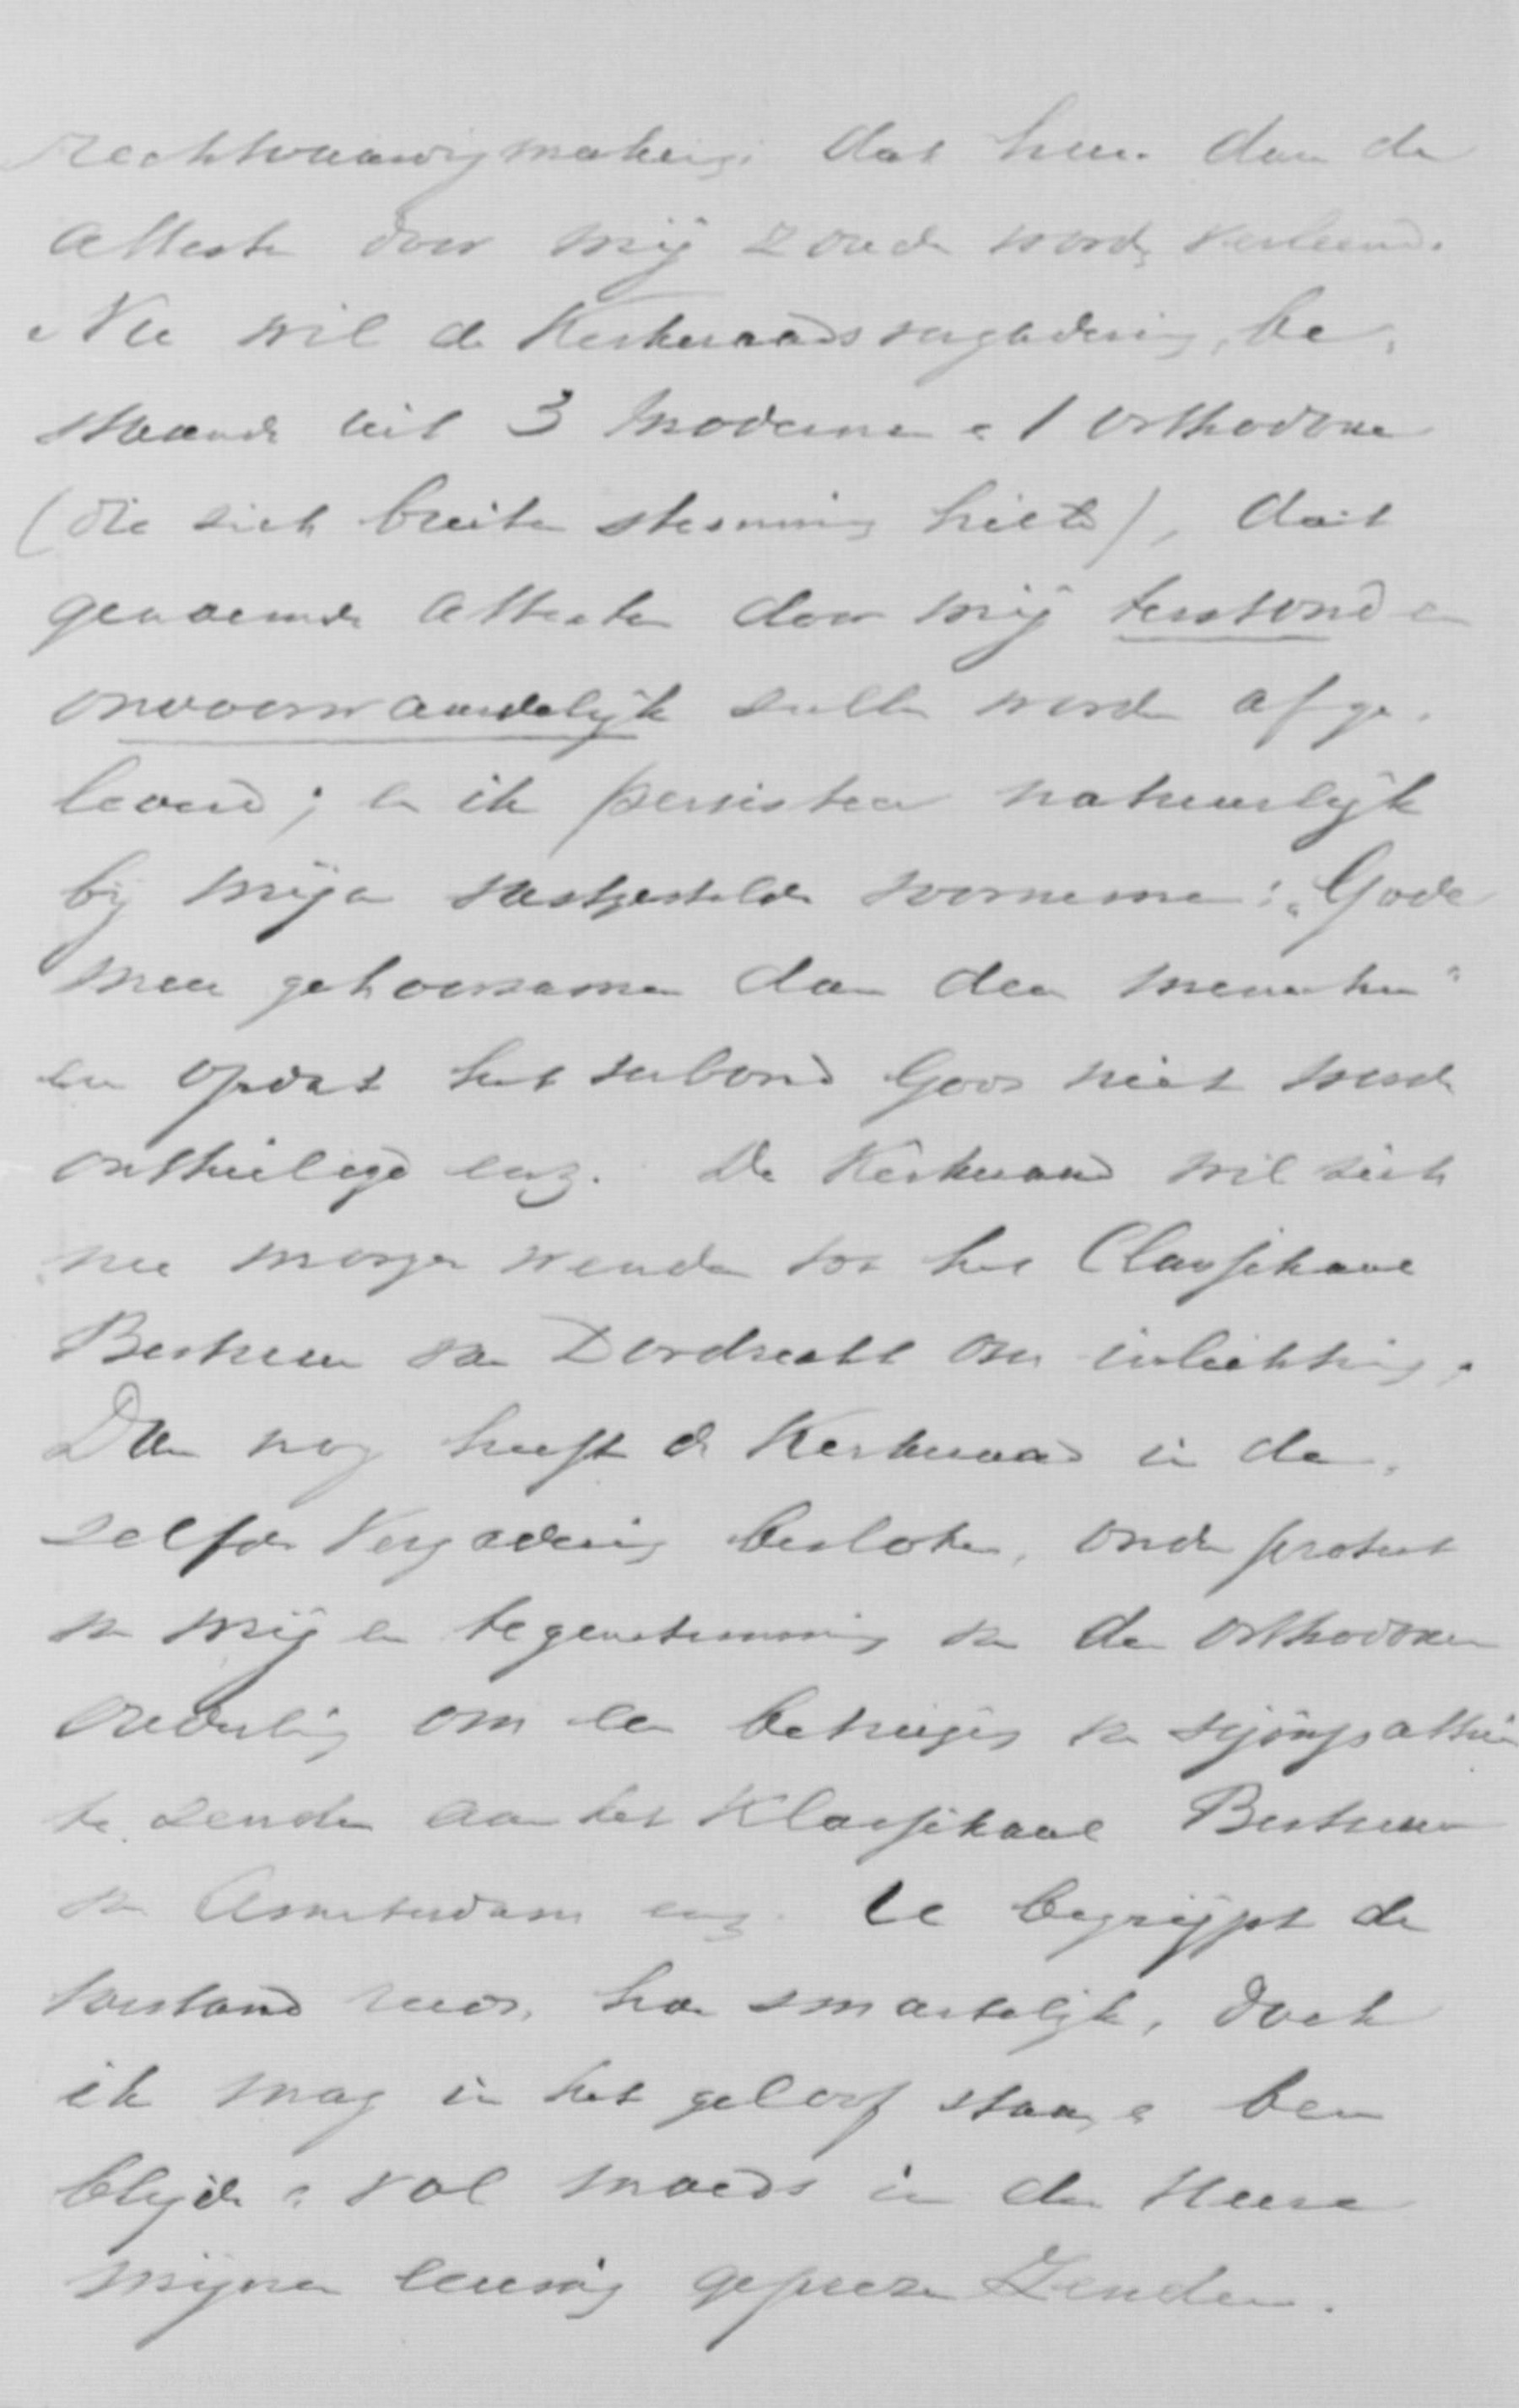 rechtvaardigmaking; dat hun dan de
attesten door mij zouden worden verleend.
Nu wil de Kerkeraadsvergadering, be-
staande uit 3 modernen & 1 orthodoxe
(die zich buiten stemming hield), dat
genoemde attesten door mij terstond en
onvoorwaardelijk zullen worden afge-
leverd; en ik persisteer natuurlijk
bij mijn vastgestelde voornemen: „Gode
meer gehoorzamen dan den menschen"
en opdat het verbond Gods niet worde
ontheiligd enz. De Kerkeraad wil zich
nu morgen wenden tot het Classikaal
Bestuur van Dordrecht om inlichting.
Dan nog heeft de Kerkeraad in de-
zelfde Vergadering besloten, onder protest
van mij en tegenstemming van den orthodoxen
ouderling om een betuiging van sympathie
te zenden aan het Klassikaal Bestuur
van Amsterdam enz. U begrijpt de
toestand is, hoe smartelijk, doch
ik mag in het geloof staan & ben
blijde & vol moeds in den Heere
mijnen geprezen Zender.